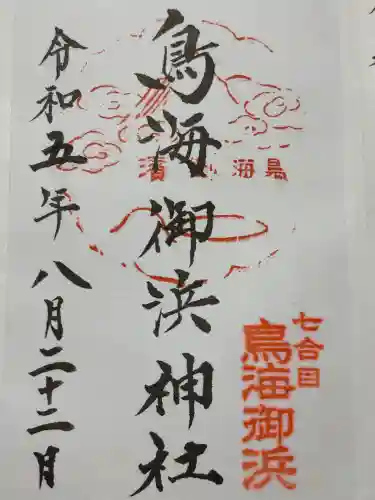 七合目
鳥海御浜
鳥海
鳥海御浜神社
令和五年八月二十二月